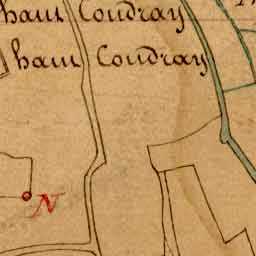 haut Coudray
haut Coudray
N